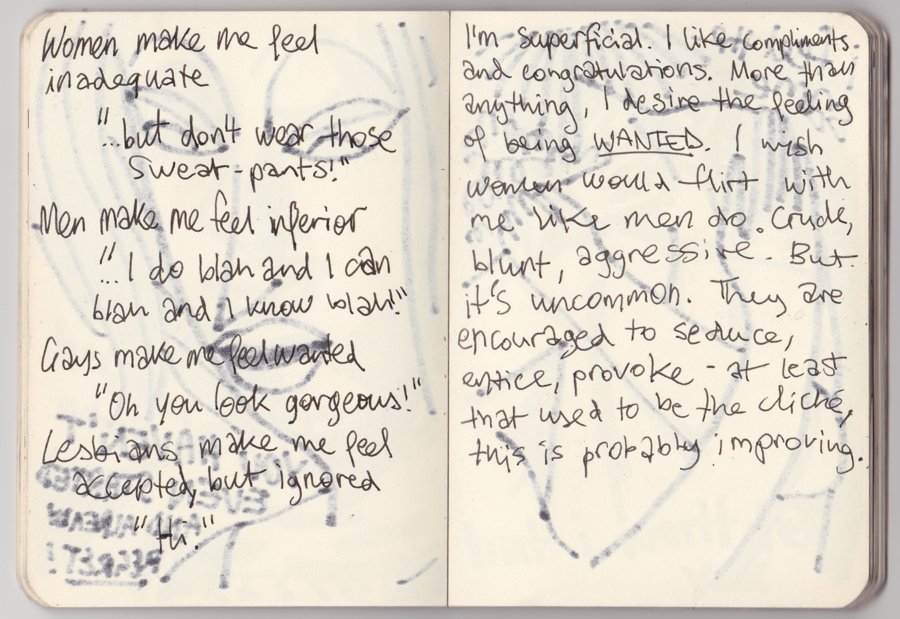 Women make me feel
inadequate
"...but don't wear those
Sweat-pants!"
Men make me feel inferior
"...I do blah and I can
blah and I know blah!"
Gays make me feel wanted
"Oh you look gorgeous!"
Lesbians make me feel
accepted, but ignored
"Hi."
I'm superficial. I like compliments
and congratulations. More than
anything, I desire the feeling
of being WANTED. I wish
women would flirt with
me like men do. Crude,
blunt, aggressive. But
it's uncommon. They are
encouraged to seduce,
entice, provoke - at least
that used to be the cliché,
this is probably improving.